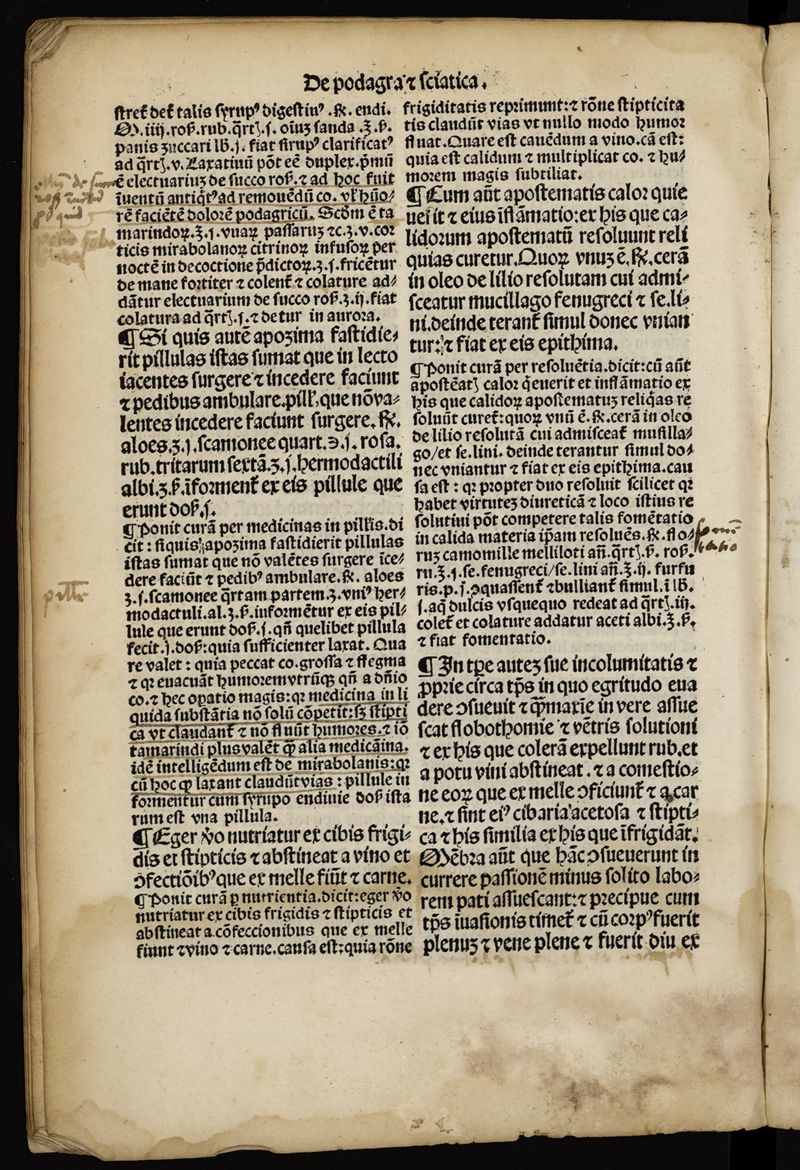 De podagra ⁊ sciatica.
stret̃ det̃ talis syrupꝰ digestiuꝰ .℞. endi.
panis zuccari lb.j. fiat sirupꝰ clarificatꝰ
ad q̃rtꝭ.v. Laxatiuũ põt eẽ duplex. pͥmũ
ẽ electuariuz de succo ros̃.⁊ ad hoc fuit
inuentũ antiq̃tꝰ ad remouẽdũ co. vl̃ hũo⸗
rẽ faciẽtẽ dolorẽ podagricũ. Scd̃m ẽ ta
marindoꝝ.ʒ.j.vuaꝝ passaruz ⁊c.ʒ.v.cor
ticis mirabolanoꝝ citrinoꝝ infusoꝝ per
noctẽ in decoctione p̃dictoꝝ.ʒ.s.fricẽtur
de mane fortiter ⁊ colent̃ ⁊ colature ad⸗
dãtur electuarium de succo ros̃.ʒ.ij.fiat
colatura ad q̃rtꝭ.j.⁊ detur in aurora.
¶ Si quis autẽ apozima fastidie⸗
rit pillulas istas sumat que in lecto
iacentes surgere ⁊ incedere faciunt
⁊ pedibus ambulare.pill̃.que nõva⸗
lentes incedere faciunt surgere.℞.
aloes.ʒ.j.scamonee quart.℈.j.rosa.
rub.tritarum sextã.ʒ.j.hermodactili
albi.ʒ.ß.ĩforment̃ ex eis pillule que
erunt dos̃.j.
¶ Ponit curã per medicinas in pill̃is.di
cit: siquis apozima fastidierit pillulas
istas sumat que nõ valẽtes surgere ĩce⸗
dere faciũt ⁊ pedibꝰ ambulare.℞. aloes
ʒ.j.scamonee q̃rtam partem.ʒ.vniꝰ her⸗
modactuli.al.ʒ.ß.informẽtur ex eis pil⸗
lule que erunt dos̃.j.qñ quelibet pillula
fecit.j.dos̃:quia sufficienter laxat. Qua
re valet: quia peccat co.grossa ⁊ flegma
⁊ qꝛ euacuãt humorem vtrũqꝫ qñ a dñio
co.⁊ hec opatio magis:qꝛ medicina in li
quida substãtia nõ solũ cõpetit:sꝫ stipti
ca vt claudant̃ ⁊ nõ fluũt humores.⁊ iõ
tamarindi plus valẽt q̃ȝ alia medicãina.
idẽ intelligẽdum est de mirabolanis:qꝛ
cũ hoc ꝙ laxant claudũt vias: pillule in
formentur cum syrupo endiuie dos̃ ista
rum est vna pillula.
¶ Eger v̊o nutriatur ex cibis frigi⸗
dis et stipticis ⁊ abstineat a vino et
ꝯfectiõibꝰ que ex melle fiũt ⁊ carne.
¶ Ponit curã p nutrientia.dicit:eger v̊o
nutriatur ex cibis frigidis ⁊ stipticis et
abstineat a cõfeccionibus que ex melle
fiunt ⁊ vino ⁊ carne.causa est:quia rõne
frigiditatis reprimunt:⁊ rõne stipticita
tis claudũt vias vt nullo modo humor
fluat.Quare est cauẽdum a vino.cã est:
quia est calidum ⁊ multiplicat co. ⁊ hu⸗
morem magis subtiliat.
¶ Cum aũt apostematis calor quie
uerit ⁊ eius ĩflãmatio:ex his que ca⸗
lidorum apostematũ resoluunt reli
quias curetur.Quoꝝ vnuz ẽ.℞.cerã
in oleo de lilio resolutam cui admi⸗
sceatur mucillago fenugreci ⁊ se.li⸗
ni.deinde terant̃ simul donec vnian
tur:⁊ fiat ex eis epithima.
¶ Ponit curã per resoluẽtia.dicit:cũ aũt
apostẽatꝭ calor q̃euerit et inflãmatio ex
his que calidoꝝ apostematuz reliq̃as re
soluũt curet̃:quoꝝ vnũ ẽ.℞.cerã in oleo
de lilio resolutã cui admisceat̃ musilla⸗
go/et se.lini. deinde terantur simul do⸗
nec vniantur ⁊ fiat ex eis epithima.cau
sa est: qꝛ propter duo resoluit scilicet qꝛ
habet virtutez diureticã ⁊ loco istius re
solutiui põt competere talis fomẽtatio
in calida materia ip̃am resoluẽs.℞.flo⸗
ruz camomille melliloti añ.q̃rtꝭ.ß. ros̃.
ru.ʒ.j.se.fenugreci/se.lini añ.ʒ.ij. furfu
ris.p.j.ꝯquassent̃ ⁊bulliant̃ simul.ĩ lb.
j.aq̃ dulcis vsquequo redeat ad q̃rtꝭ.iij.
colet̃ et colature addatur aceti albi.ʒ.ß.
⁊ fiat fomentatio.
¶ In tp̃e autez sue incolumitatis ⁊
ꝓprie circa tp̃s in quo egritudo eua
dere ꝯsueuit ⁊ q̃ȝmaxĩe in vere assue
scat flobothomie ⁊ vẽtris solutioni
⁊ ex his que colerã expellunt rub.et
a potu vini abstineat. ⁊ a comestio⸗
ne eoꝝ que ex melle ꝯficiunt̃ ⁊ a car
ne.⁊ sint eiꝰ cibaria acetosa ⁊ stipti⸗
ca ⁊ his similia ex his que ĩfrigidãt.
Mẽbra aũt que hãc ꝯsueuerunt in
currere passionẽ minus solito labo⸗
rem pati assuescant:⁊ precipue cum
tp̃s ĩuasionis timet̃ ⁊ cũ corpꝰ fuerit
plenuz ⁊ vene plene ⁊ fuerit diu ex